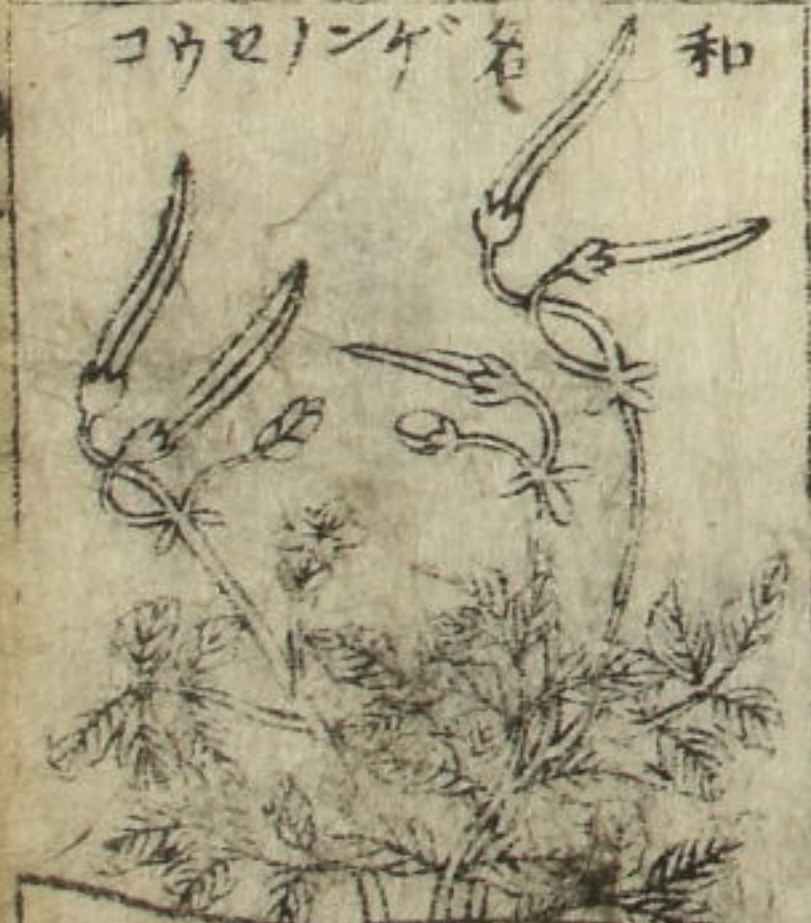 和名ゲンノセウコ